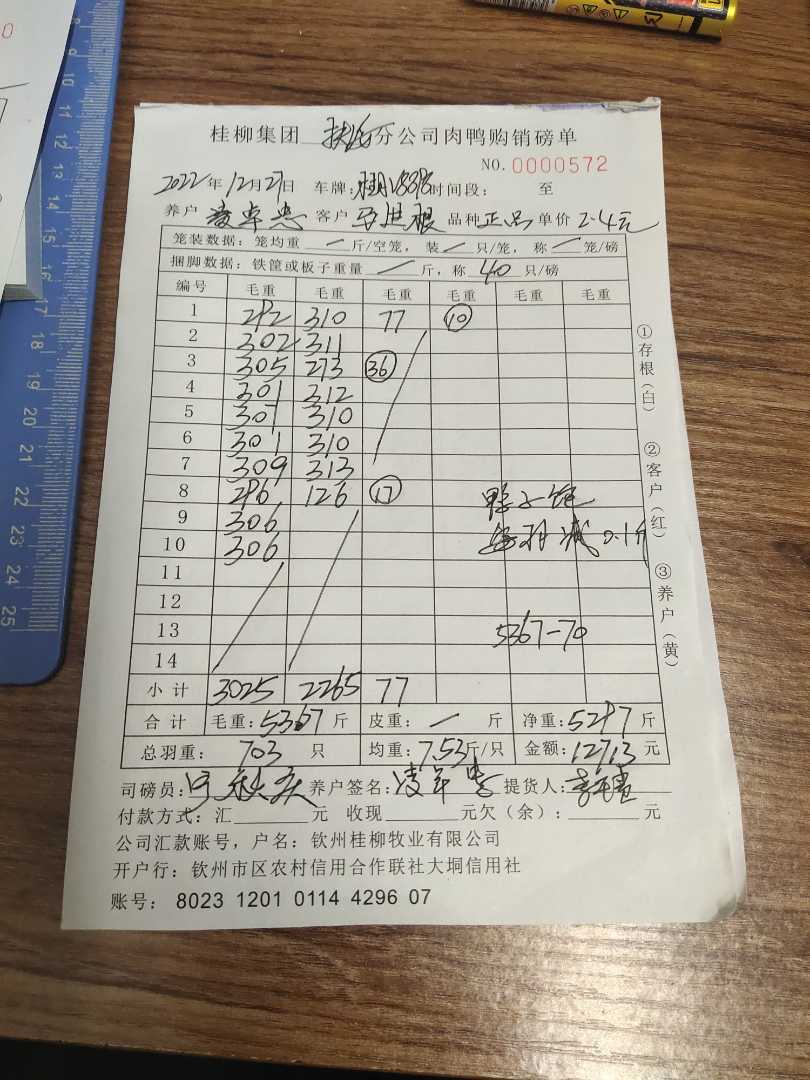 桂柳集团 分公司肉鸭购销磅单
NO.0000572
2022年12月27日 车牌: 时间段: 至
养户 凌卓忠 客户 品种 正品 单价 2.4元
笼装数据:笼均重 一 斤/空笼,装 一 只/笼,称 一 笼/磅
捆脚数据:铁筐或板子重量 一 斤,称 40 只/磅
编号 毛重 毛重 毛重 毛重 毛重 毛重
1 282 310 77 10
2 302 311
3 305 273 36
4 301 312
5 307 310
6 301 310
7 309 313
8 296 126 17
9 306
10 306
11
12
13
14
鸭子饱
每羽减0.1斤
5367-70
小计 3025 2265 77
合计 毛重:5367斤 皮重:一 斤 净重:5297斤
总羽重: 703 只 均重:7.53斤/只 金额:12713元
司磅员: 养户签名: 提货人:
付款方式:汇 元 收现 元欠(余): 元
公司汇款账号,户名:钦州桂柳牧业有限公司
开户行:钦州市区农村信用合作联社大垌信用社
账号: 8023 1201 0114 4296 07
①存根(白)
②客户(红)
③养户(黄)
8
9
10
11
17
18
19
20
21
22
23
24
25